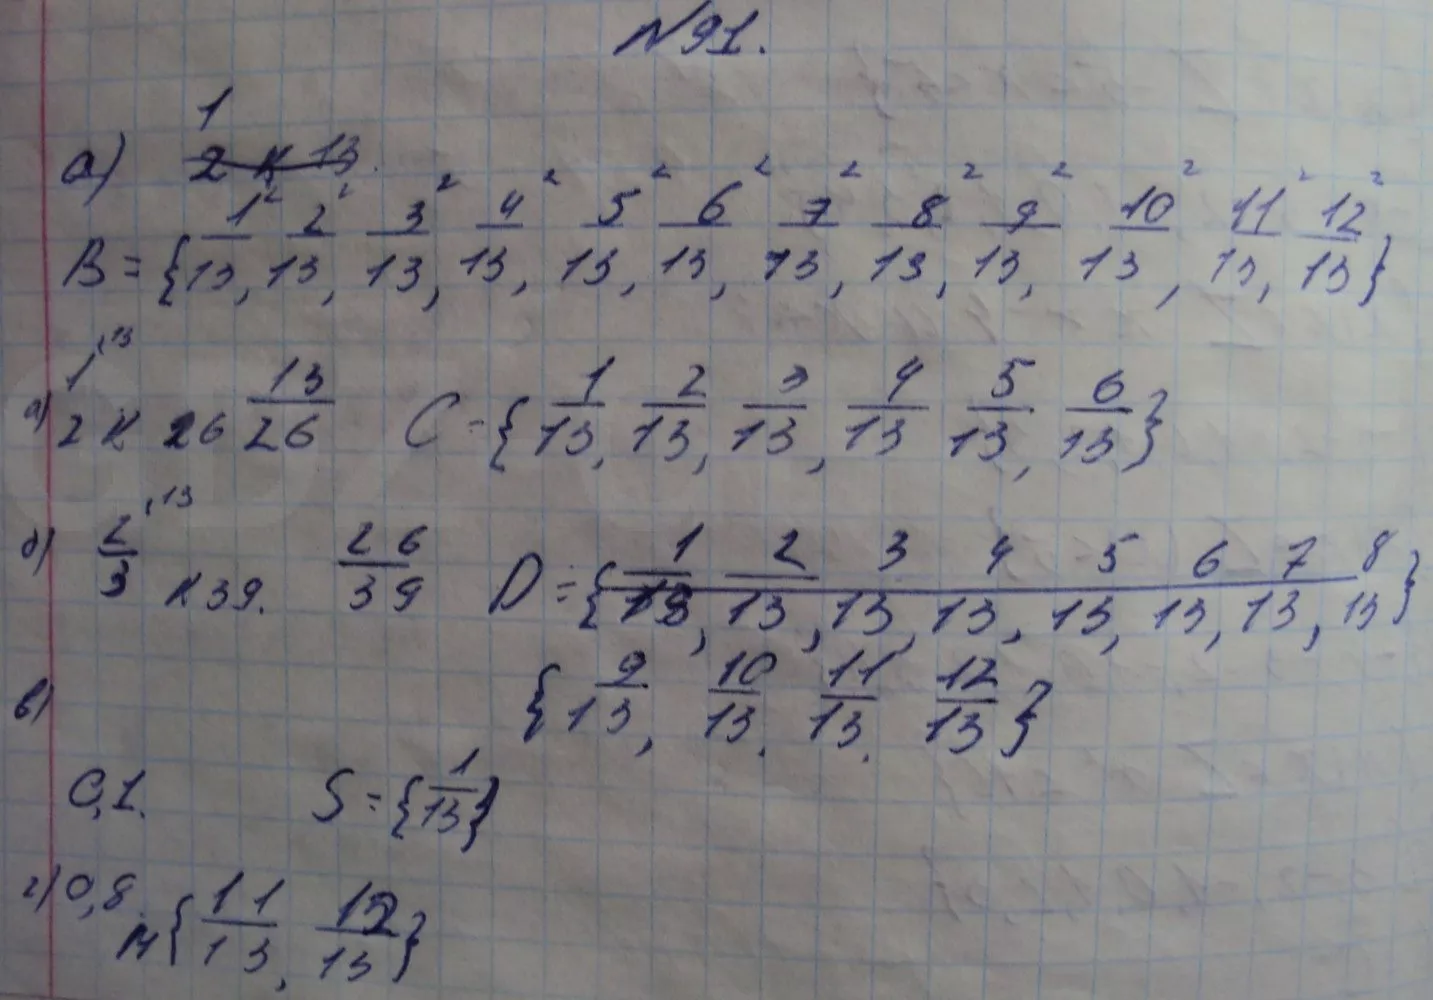 №91.
а) 1/2 к 13.
B = {1/13, 2/13, 3/13, 4/13, 5/13, 6/13, 7/13, 8/13, 9/13, 10/13, 11/13, 12/13}
а) 1/2 ,13 к 26 13/26 C = {1/13, 2/13, 3/13, 4/13 5/13, 6/13}
б) 2/3 ,13 к 39. 26/39 D = {1/13, 2/13, 3/13, 4/13, 5/13, 6/13, 7/13, 8/13}
{9/13, 10/13. 11/13. 12/13}
в)
0,1. S = {1/13}
г) 0,8 М {11/13, 12/13}